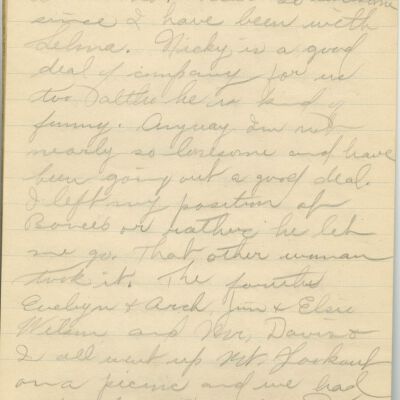 since I have been with
Selma. Nicky is a good
deal of company for us
too altho he is kind of
funny. Anyway I'm not
nearly so lonesome and have
been going out a good deal.
I left my position at
or rather he let
me go. That other woman
took it. The
Evelyn & Arch, Jim & Elsie
Wilson and Mr. &
I all went up Mt. Lookout
on a picnic and we had